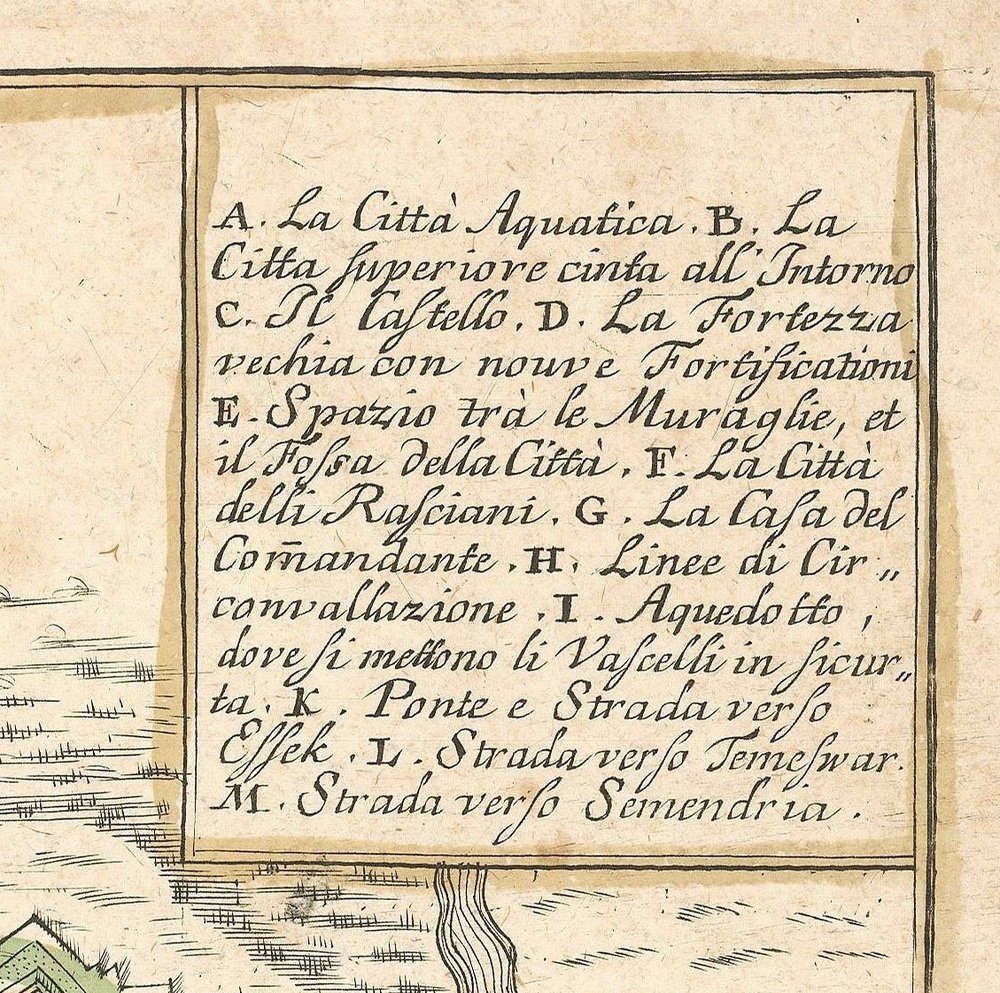 A. La Città Aquatica. B. La
Citta ſuperiore cinta all' Intorno
C. Il Caſtello. D. La Fortezza
vechia con nouve Fortificationi
E. Spazio trà le Muraglie, et
il Foſsa della Città. F. La Città
delli Raſciani. G. La Caſa del
Com̄andante. H. Linee di Cir„
convallazione. I. Aquedotto,
dove ſi mettono li Vaſcelli in ſicur„
ta. K. Ponte e Strada verſo
Eſſek. L. Strada verſo Temeſwar.
M. Strada verſo Semendria.